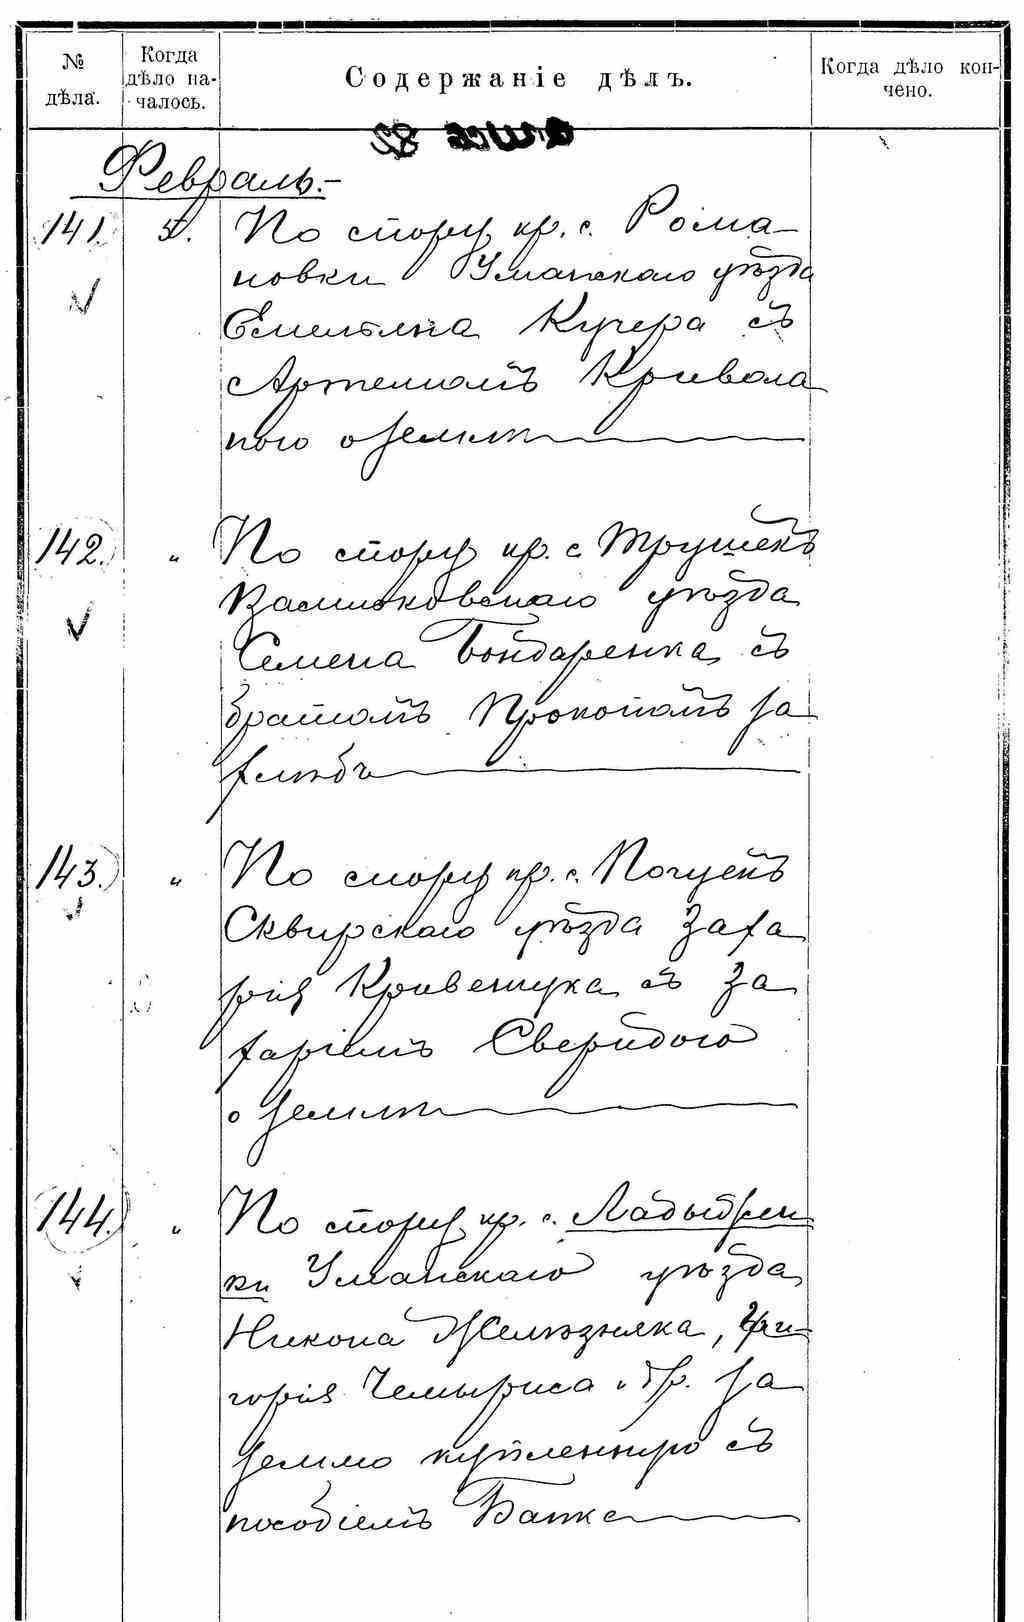 № дѣла.
Когда дѣло началось.
Содержаніе дѣлъ.
Когда дѣло кончено.
опись 82
Февраль.-
141. 5. По спору кр. с. Рома-
новки Уманскаго уѣзда
Емельяна Кучера съ
Артемомъ Кривола
пого о землѣ
142. " По спору кр. с.
уѣзда
Семена Бондаренка съ
братомъ Прокопомъ за
143. " По спору кр. с. Погуекъ
Сквирскаго уѣзда Заха
рія съ За
харіемъ
о землѣ
144. " По спору кр. с. Ладыжин
ки Уманскаго уѣзда
Никона Желѣзняка, Гри-
горія Чемыриса и др. за
землю купленную съ
пособіемъ Банка